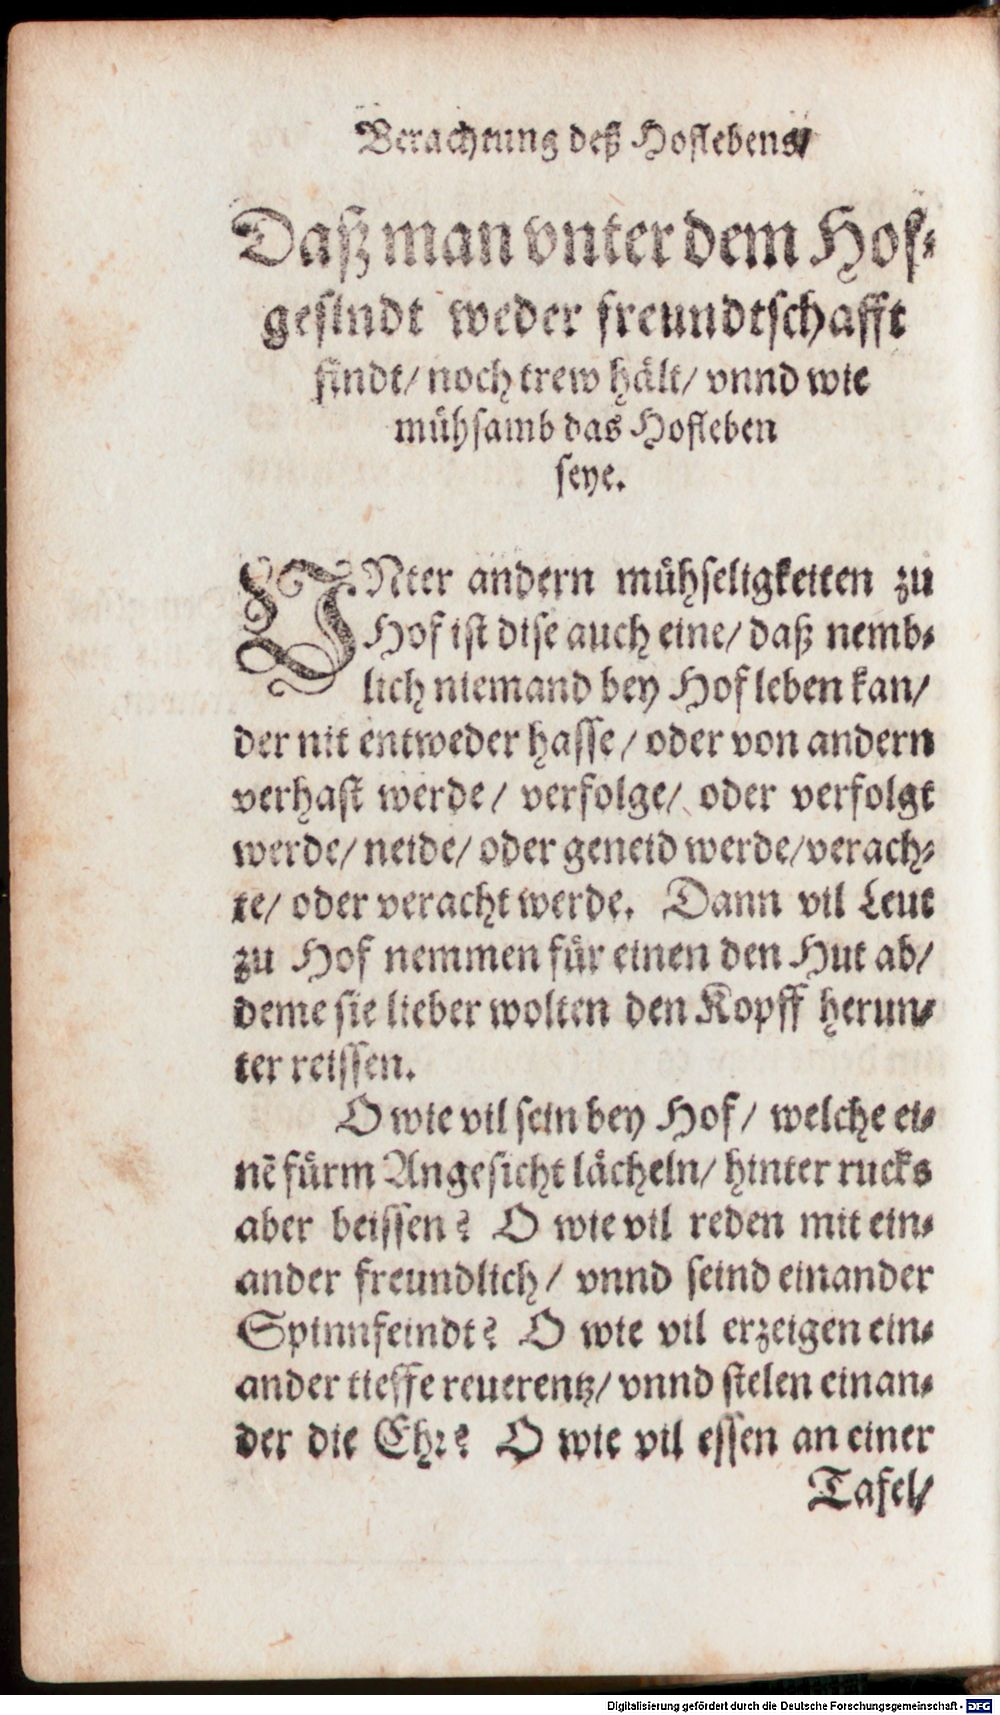 Verachtung deß Hoflebens/
Daß man vnter dem Hof-
gesindt weder freundtschafft
findt/ noch trew hält/ vnnd wie
mühsamb das Hofleben
seye.
VNter andern mühseligkeiten zu
Hof ist dise auch eine/ daß nemb-
lich niemand bey Hof leben kan/
der nit entweder hasse/ oder von andern
verhast werde/ verfolge/ oder verfolgt
werde/ neide/ oder geneid werde/ verach-
te/ oder veracht werde. Dann vil Leut
zu Hof nemmen für einen den Hut ab/
deme sie lieber wolten den Kopff herun-
ter reissen.
O wie vil sein bey Hof/ welche ei-
nē fürm Angesicht lächeln/ hinter rucks
aber beissen? O wie vil reden mit ein-
ander freundlich/ vnnd seind einander
Spinnfeindt? O wie vil erzeigen ein-
ander tieffe reuerentz/ vnnd stelen einan-
der die Ehr? O wie vil essen an einer
Tafel/
Digitalisierung gefördert durch die Deutsche Forschungsgemeinschaft - DFG